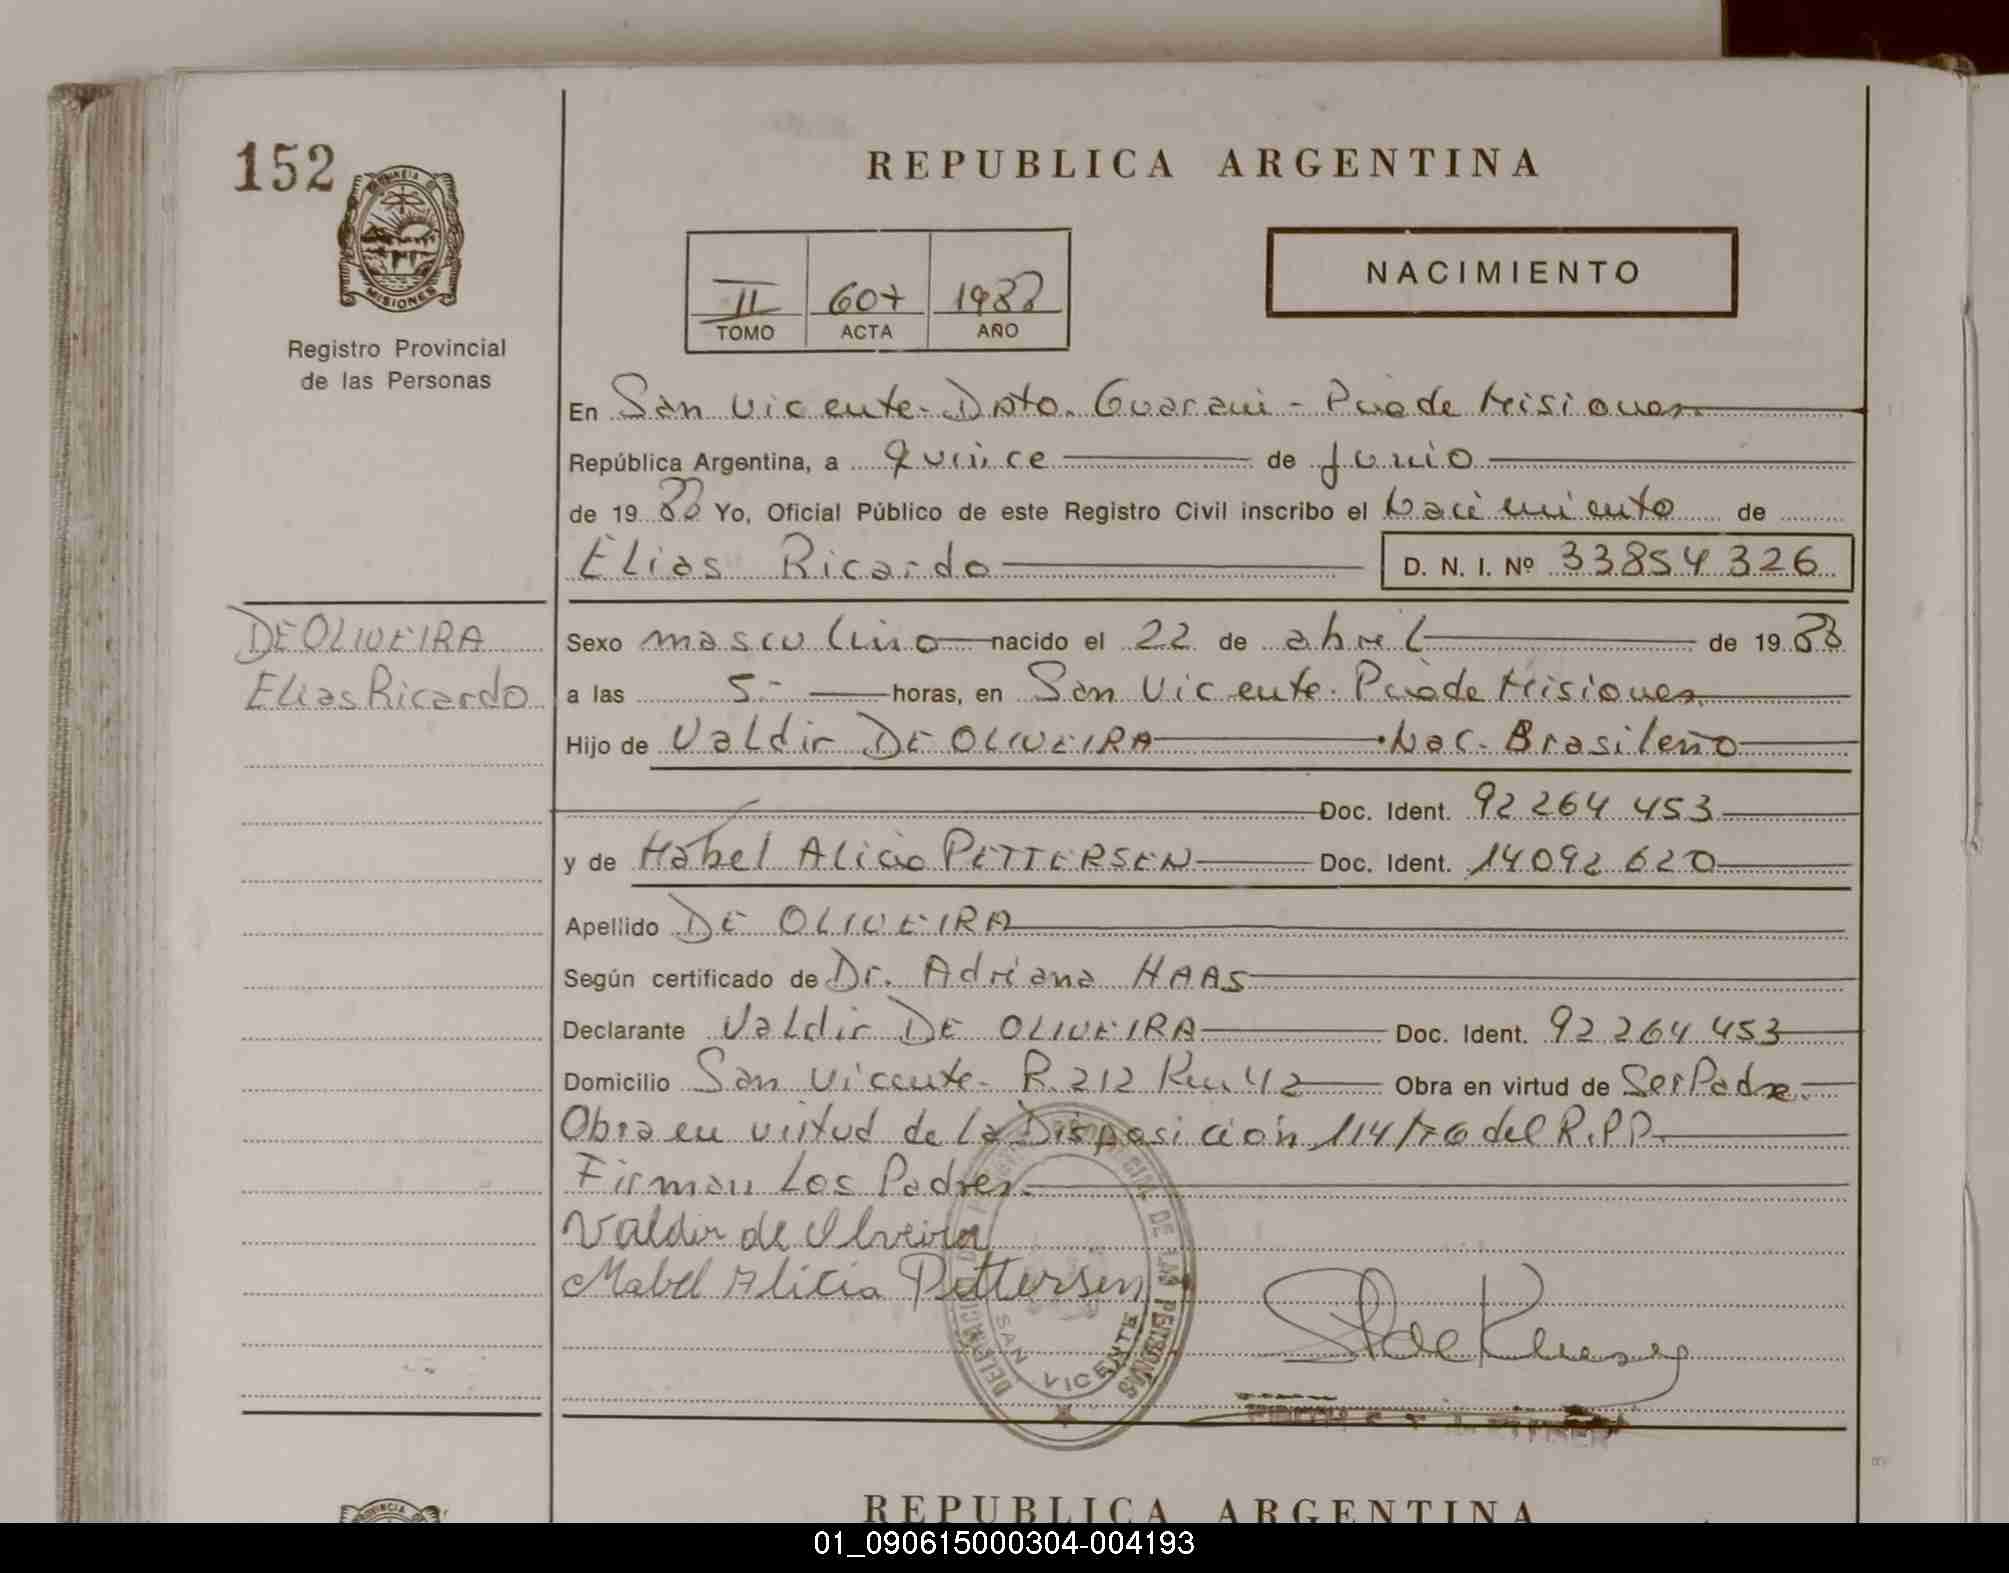 152
PROVINCIA DE
MISIONES
Registro Provincial
de las Personas
REPUBLICA ARGENTINA
II 607 1988
TOMO ACTA AÑO
NACIMIENTO
En San Vicente - Dpto. Guaraní - Pcia de Misiones
República Argentina, a quince de junio
de 1988 Yo, Oficial Público de este Registro Civil inscribo el Nacimiento de
Elias Ricardo D. N. I. Nº 33854326
DE OLIVEIRA
Elias Ricardo
Sexo masculino nacido el 22 de abril de 1988
a las 5.- horas, en San Vicente - Pcia de Misiones
Hijo de Valdir DE OLIVEIRA - Nac. Brasileño
Doc. Ident. 92 264 453
y de Mabel Alicia PETTERSEN Doc. Ident. 14 092 620
Apellido DE OLIVEIRA
Según certificado de Dr. Adriana HAAS
Declarante Valdir DE OLIVEIRA Doc. Ident. 92 264 453
Domicilio San Vicente - R. 212 Km 42 Obra en virtud de Ser Padre.
Obra en virtud de la Disposición 114/76 del R.P.P.
Firman Los Padres.
Valdir de Oliveira
Mabel Alicia Pettersen
DE LAS PERSONAS
SAN VICENTE
REPUBLICA ARGENTINA
01_090615000304-004193